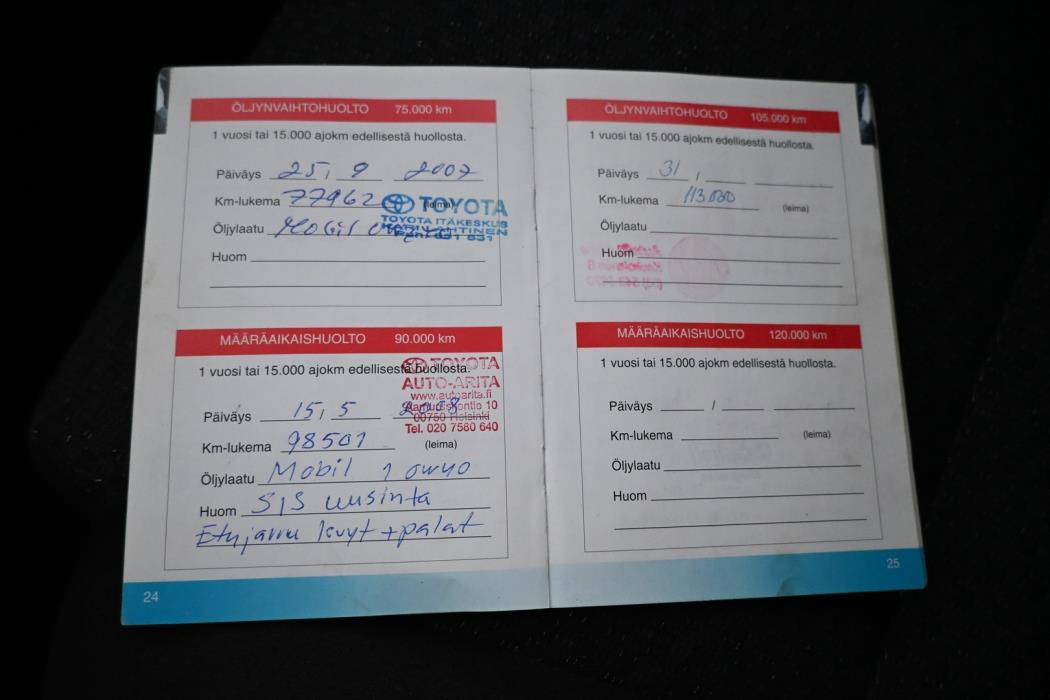 ÖLJYNVAIHTOHUOLTO 75.000 km
1 vuosi tai 15.000 ajokm edellisestä huollosta.
Päiväys 25 / 9 2007
Km-lukema 77962 (leima)
TOYOTA
TOYOTA ITÄKESKUS
Öljylaatu Mobil
Huom
MÄÄRÄAIKAISHUOLTO 90.000 km
1 vuosi tai 15.000 ajokm edellisestä huollosta.
TOYOTA
AUTO-ARITA
www.autoarita.fi
00750 Helsinki
Tel. 020 7580 640
Päiväys 15 / 5 2008
Km-lukema 98501 (leima)
Öljylaatu Mobil 1 0w40
Huom S/S uusinta
Etujarru levyt + palat
24
ÖLJYNVAIHTOHUOLTO 105.000 km
1 vuosi tai 15.000 ajokm edellisestä huollosta.
Päiväys 31 /
Km-lukema 113.000 (leima)
Öljylaatu
Huom
MÄÄRÄAIKAISHUOLTO 120.000 km
1 vuosi tai 15.000 ajokm edellisestä huollosta.
Päiväys /
Km-lukema (leima)
Öljylaatu
Huom
25